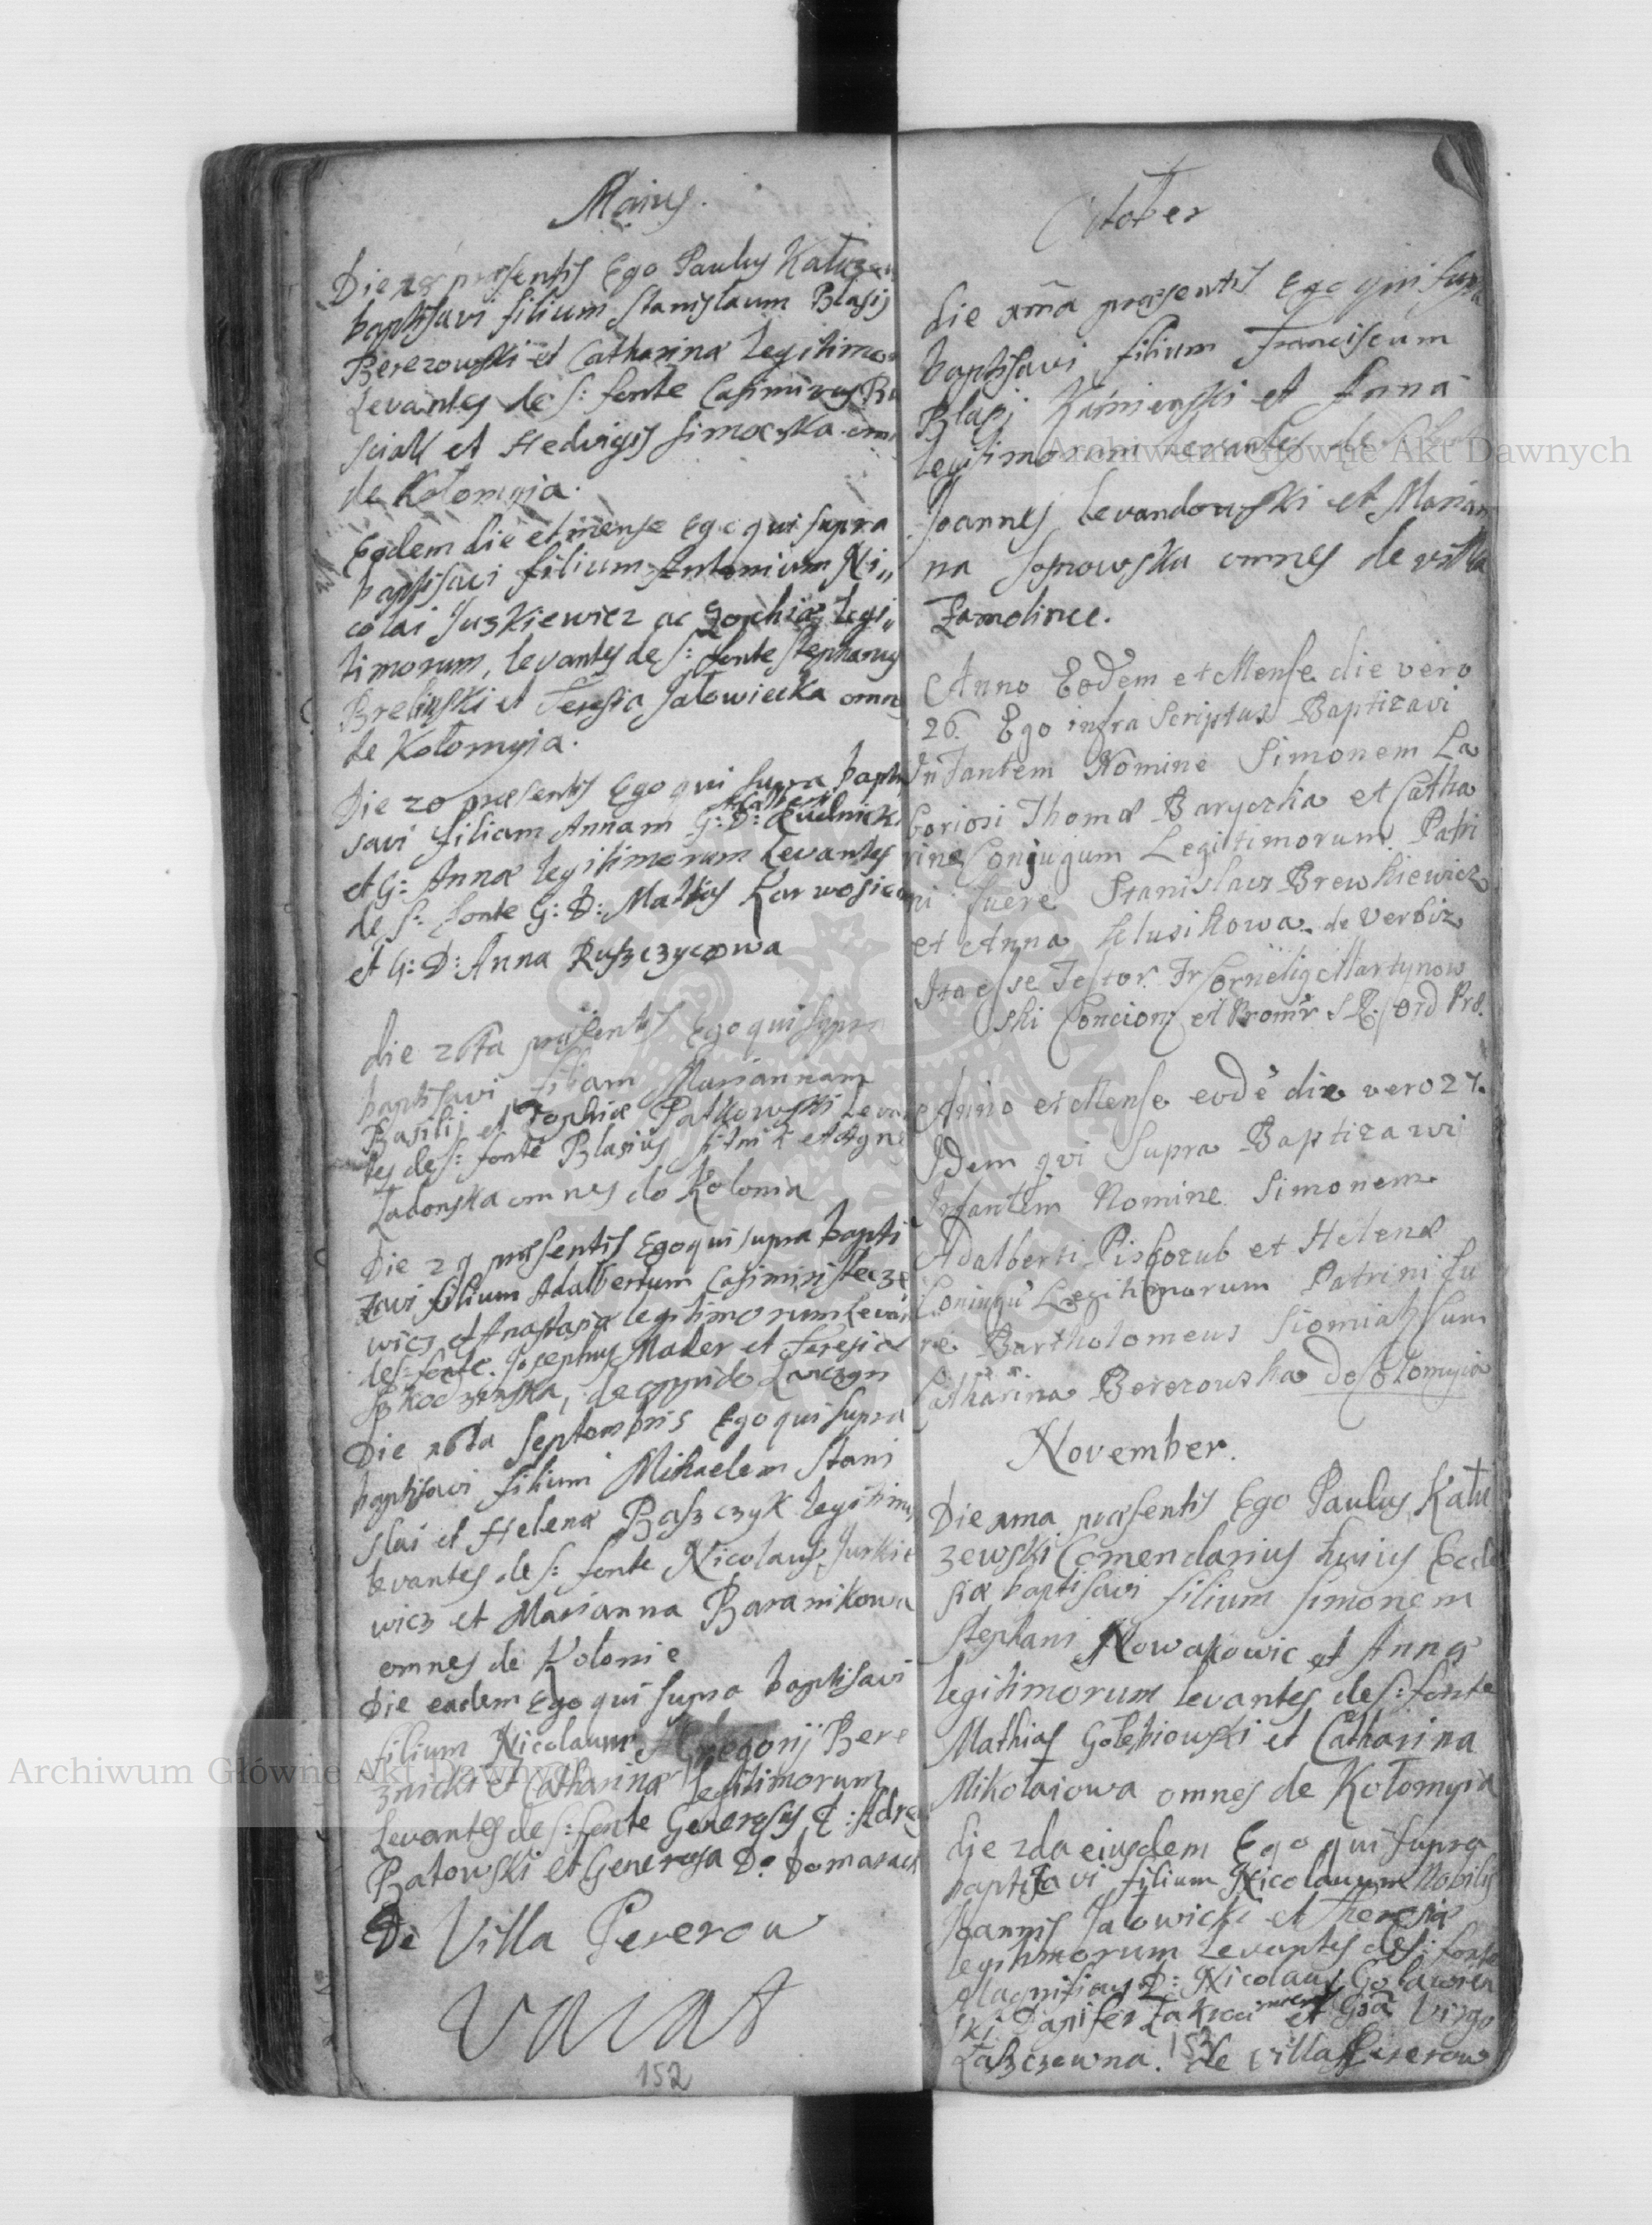 Maius.
Die 28 præsentis Ego Paulus Kałuzew
baptisavi filium Stanislaum Blasij
Berezowski et Catharinæ legitimor
Levantes de S: fonte Casimirus Ba
sciak et Hedvigis Simocska omn
de Kołomyia.
Eodem die et mense Ego qui supra
baptisavi filium Antonium Ni„
colai Juzkiewicz ac Zophiæ legi„
timorum, levantes de S: fonte Stephanus
et Teresia Jałowiecka omn
de Kołomyia.
Die 20 præsentis Ego qui supra bapti
savi filiam Annam G: D: Rudnicki
et G: Annæ legitimorum Levantes
de S: fonte G: D: Karwosie
et G: D: Anna Ruszczycowa
die 26ta præsentis Ego qui supra
baptisavi filiam Mariannam
Basilij et Zophiæ Patkowski Levan
tes de S: fonte Blasius et Agne
Zadonska omnes de Kolonia
Die 29 præsentis Ego qui supra bapti
zavi filium Adalbertum Casimiri
wicz et Anastasiæ legitimorum Levan
de S: fonte. Josephus Mader et Teresia
de oppido
Die 16ta Septembris Ego qui supra
baptisavi filium Mihaelem Stani
slai et Helenæ Baszczyk legitimor
levantes de S: fonte Nicolaus Jurkie
wicz et Marianna Baranikowa
omnes de Kolonie
Die eadem Ego qui supra baptisavi
filium Nicolaum Gregorij Bere
znicki et Catharinæ legitimorum
Levantes de S: fonte Generosus D: Adre
Batowski et Generosa D:
De Villa Pererow
vacat
152
October
die 1ma præsentis Ego qui supra
baptisavi filium Franciscum
Blasij Kamienski et Anna
legitimorum Levantes de S: fon
Joannes Levandowski et Marian
na Sosnowska omnes de villa
Zamolince.
Anno Eodem et Mense die vero
26. Ego infra Scriptus Baptizavi
Infantem Nomine Simonem La
boriosi Thomæ Baryczka et Catha
rinæ Conjugum Legittimorum. Patri
ni fuere Stanislaus Brewkiewicz
et Anna Hlusikowa de Verbiz
Ita esse Testor. Fr Cornelig Martynow
ski Concion et Promr S R. Ord Præ.
Anno et Mense eodē die vero 27.
Idem qvi Supra Baptizawi
Infantem Nomine Simonem
Adalberti Piskozub et Helenæ
Coniugū Legitimorum Patrini fu
re Bartholomeus Siomiak cum
Catharina Berezouska de Colomyia
November.
Die 1ma præsentis Ego Paulus Kału
zewski Comendarius huius Eccle
siæ baptisavi filium Simonem
Stephani Nowakowic et Annæ
legitimorum levantes de S: fonte
Mathias Gołębiowski et Catharina
Mikołaiowa omnes de Kołomyia
die 2da eiusdem Ego qui supra
baptisavi filium Nicolaum Nobilis
Joannis Jałowicki et Theresiæ
legitimorum Levantes de S: fonte
Magnificus D: Nicolaus
ski Dapifer et Gsa Virgo
Łaszczewna. de villa Pererow
153
Archiwum Główne Akt Dawnych
Archiwum Główne Akt Dawnych